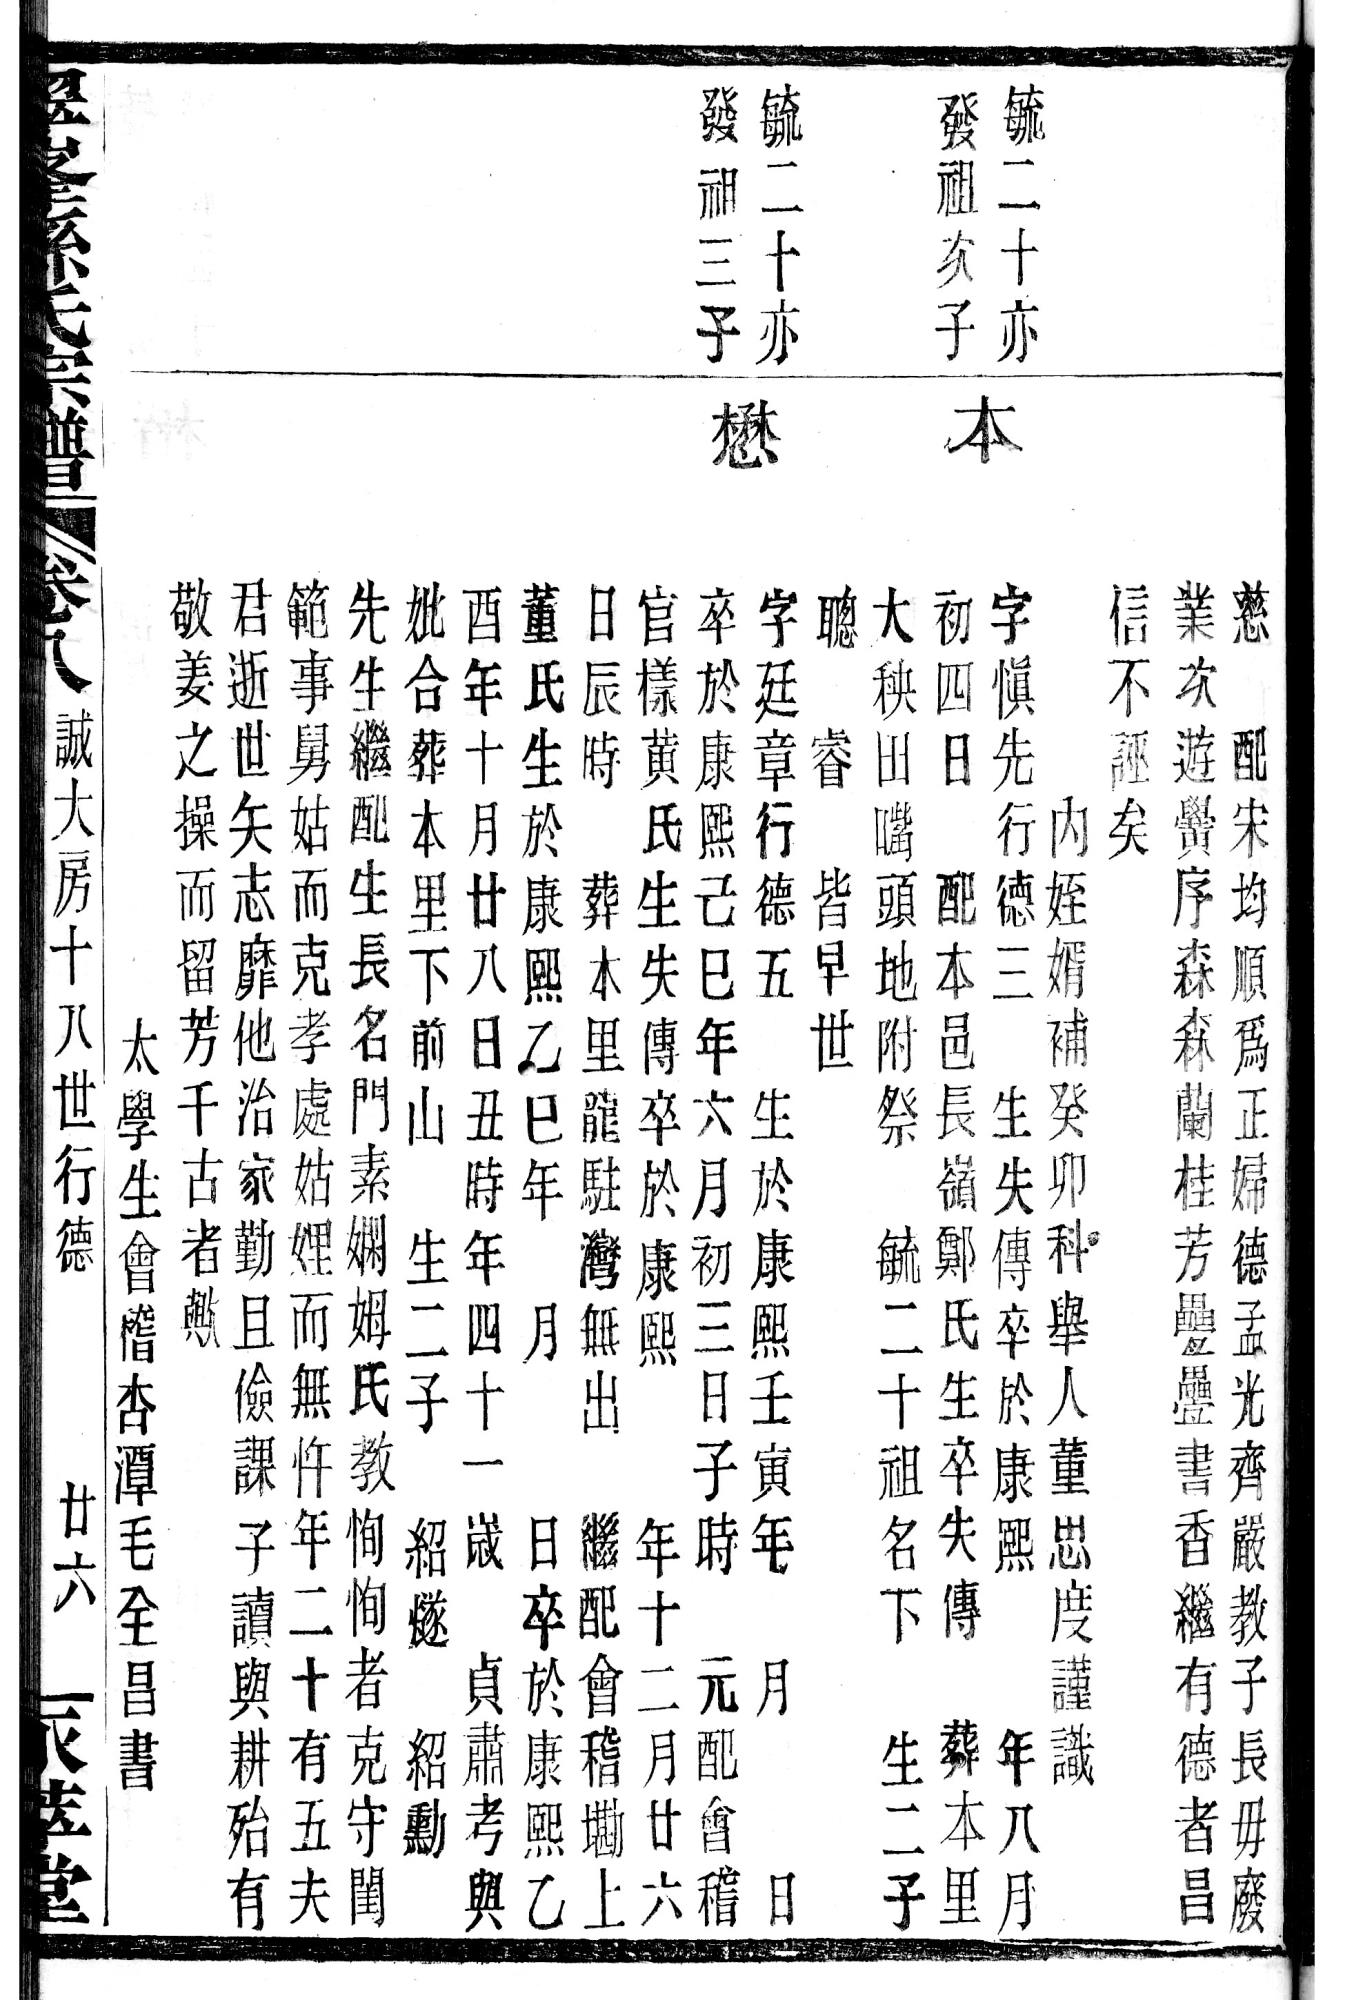 慈　配宋均順爲正婦德孟光齊嚴教子長毋廢
業次遊黌序森森蘭桂芳疊疊書香繼有德者昌
信不誣矣
內姪婿補癸卯科舉人董思度謹識
毓二十亦
發祖次子
本
字愼先行德三　生失傳卒於康熙　年八月
初四日　配本邑長嶺鄭氏生卒失傳　葬本里
大秧田嘴頭地附祭　毓二十祖名下　生二子
聰　睿　皆早世
毓二十亦
發祖三子
懋
字廷章行德五　生於康熙壬寅年　月　日
卒於康熙己巳年六月初三日子時　元配會稽
官樣黃氏生失傳卒於康熙　年十二月廿六
日辰時　葬本里龍駐灣無出　繼配會稽墈上
董氏生於康熙乙巳年　月　日卒於康熙乙
酉年十月廿八日丑時年四十一歲　貞肅考與
妣合葬本里下前山　生二子　紹燧　紹勳
先生繼配生長名門素嫻姆氏教恂恂者克守閨
範事舅姑而克孝處姑娌而無忤年二十有五夫
君逝世矢志靡他治家勤且儉課子讀與耕殆有
敬姜之操而留芳千古者歟
太學生會稽杏潭毛全昌書
孫氏宗譜
卷八
誠大房十八世行德
廿六
萃堂